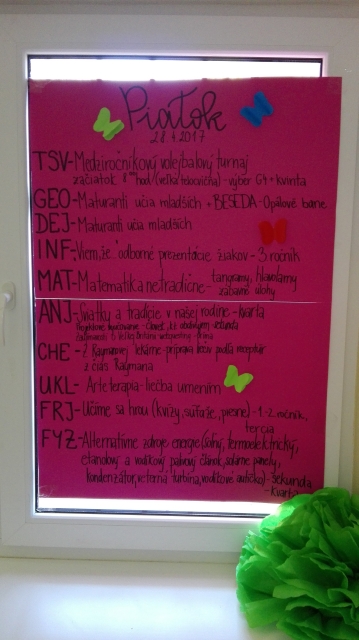 Piatok
28.4.2017
TSV-Medziročníkový volejbalový turnaj
začiatok 8 hod (veľká telocvičňa) - výber G4 + kvinta
GEO-Maturanti učia mladších + BESEDA - Opálové bane
DEJ-Maturanti učia mladších
INF-Viem, že odborné prezentácie žiakov - 3 ročník
MAT-Matematika netradične - tangramy, hlavolamy
zábavné úlohy
ANJ-Sviatky a tradície v našej rodine - kvarta
Projektové vyučovanie
CHE - Z Raymanovej lekárne - príprava liekov podľa receptár
z čias Raymana
UKL- Arteterapia-liečba umením
FRJ-Učíme sa hrou (kvízy, súťaže, piesne) - 1.-2. ročník,
tercia
FYZ-Alternatívne zdroje energie (solný, termoelektrický,
etanolový a vodíkový palivový článok, solárne panely,
kondenzátor, veterná turbína, vodíkové autíčko) - sekunda
-kvarta